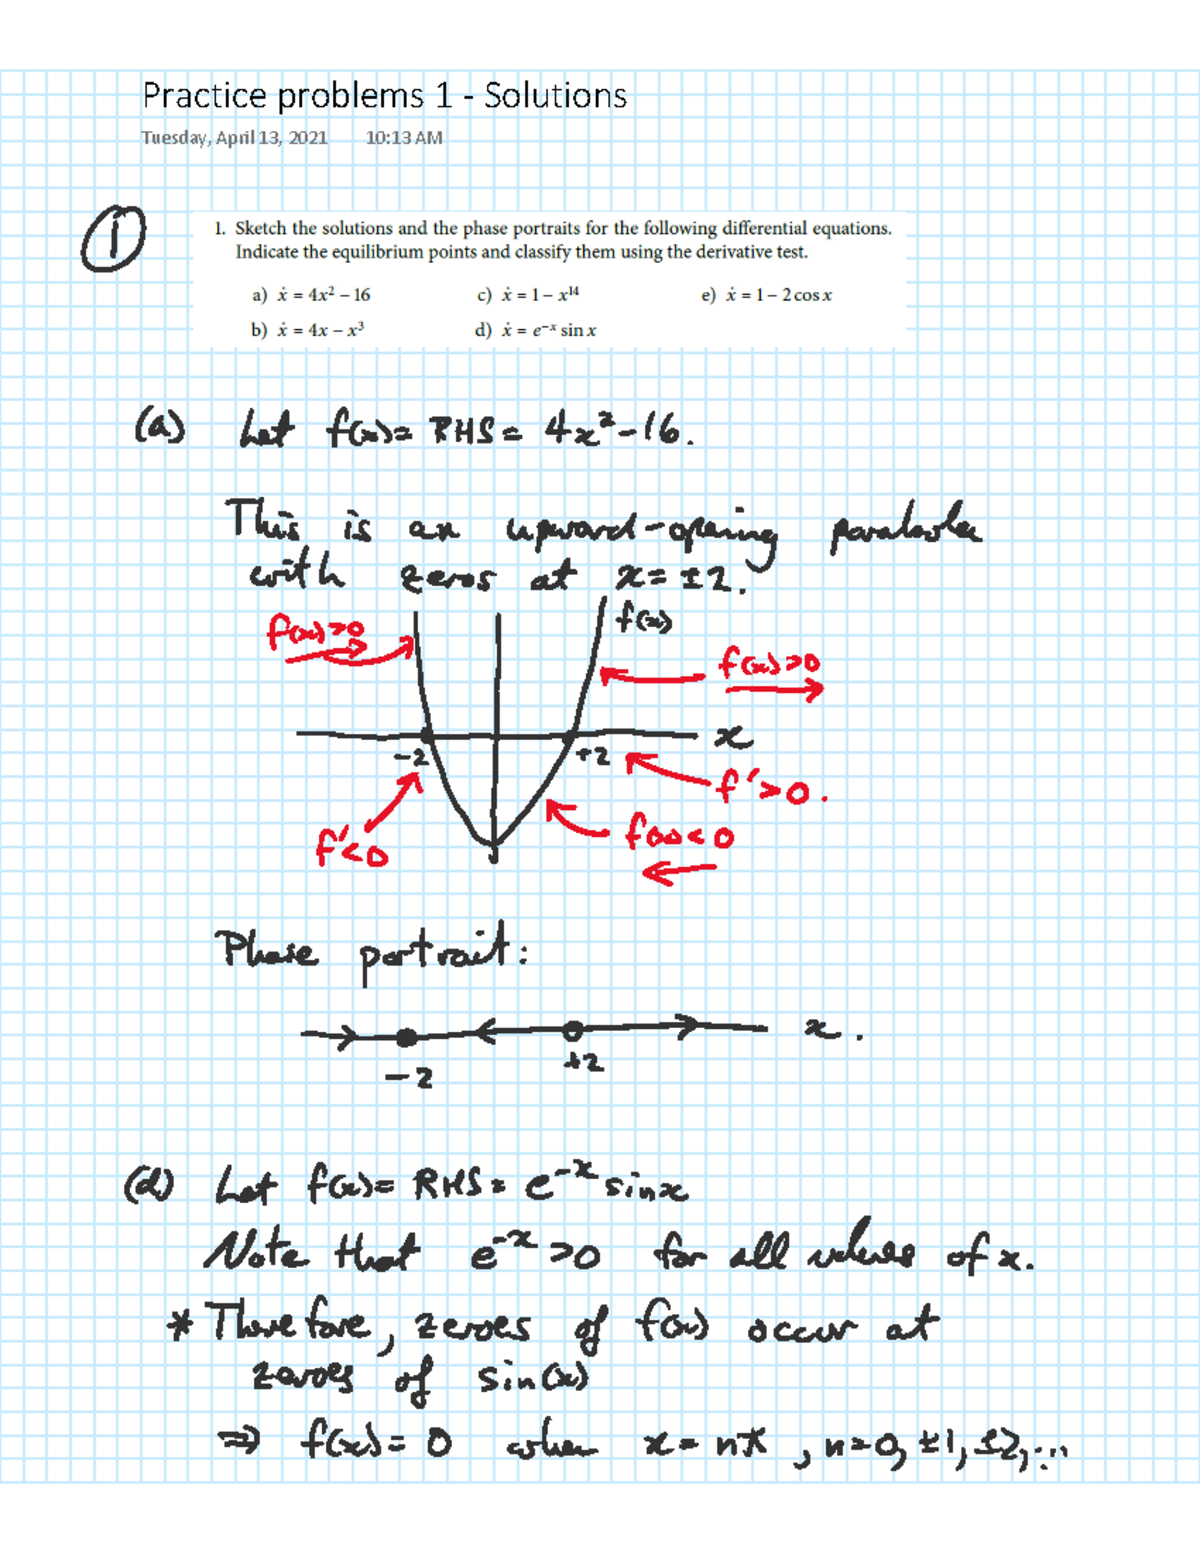 Practice problems 1 - Solutions
Tuesday, April 13, 2021 10:13 AM
①
1. Sketch the solutions and the phase portraits for the following differential equations.
Indicate the equilibrium points and classify them using the derivative test.
a) ẋ = 4x² – 16 c) ẋ = 1 – x¹⁴ e) ẋ = 1 – 2 cos x
b) ẋ = 4x – x³ d) ẋ = e⁻ˣ sin x
(a) Let f(x) = RHS = 4x² - 16.
This is an upward-opening parabola
with zeros at x = ±2.
f(x)
f(x)>0
f(x)>0
x
-2 +2
f'>0.
f(x)<0
f'<0
Phase portrait:
x.
-2 +2
(d) Let f(x) = RHS = e⁻ˣ sin x
Note that e⁻ˣ >0 for all values of x.
* Therefore, zeroes of f(x) occur at
zeroes of sin(x)
⇒ f(x) = 0 when x = nπ, n=0, ±1, ±2, ...